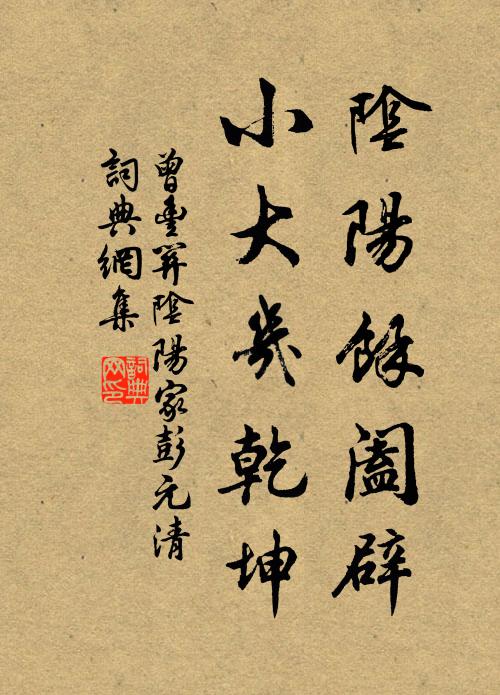 陰陽餘闔辟
小大幾乾坤
曾豐陰陽家彭元清
詞典網集
詞典
网印